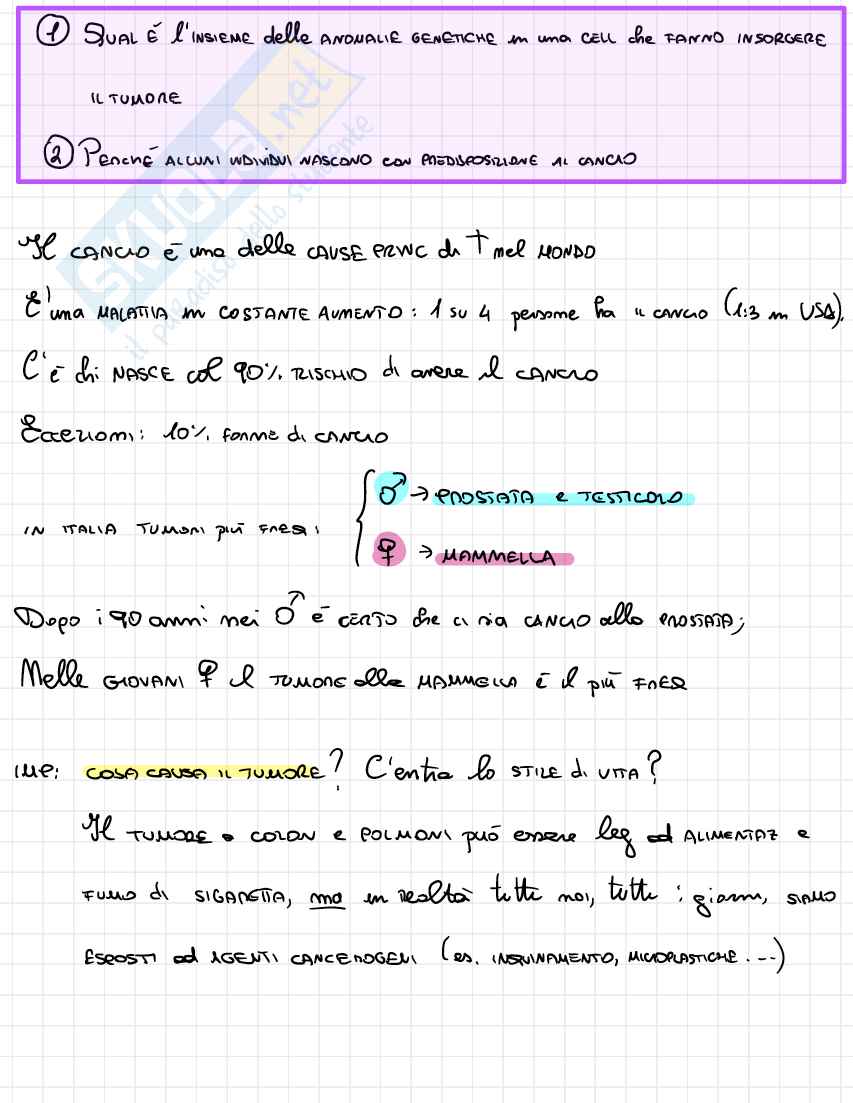 ① QUAL È l'INSIEME delle ANOMALIE GENETICHE in una CELL che FANNO INSORGERE
IL TUMORE
② PERCHÉ ALCUNI INDIVIDUI NASCONO CON PREDISPOSIZIONE AL CANCRO
SKUOLA.net
il paradiso dello studente
Il CANCRO è una delle CAUSE PRINC di † nel MONDO
E' una MALATTIA in COSTANTE AUMENTO: 1 su 4 persone ha il CANCRO (1:3 in USA).
C'è chi NASCE col 90% RISCHIO di avere il CANCRO
Eccezioni: 10% forme di CANCRO
♂ → PROSTATA e TESTICOLO
IN ITALIA TUMORI più FREQ:
♀ → MAMMELLA
Dopo i 90 anni nei ♂ è CERTO che ci sia CANCRO alla PROSTATA;
Nelle GIOVANI ♀ il TUMORE alla MAMMELLA è il più FREQ
IMP: COSA CAUSA IL TUMORE? C'entra lo STILE di VITA?
Il TUMORE a COLON e POLMONI può essere leg ad ALIMENTAZ e
FUMO di SIGARETTA, ma in realtà tutti noi, tutti i giorni, SIAMO
ESPOSTI ad AGENTI CANCEROGENI (es. INQUINAMENTO, MICROPLASTICHE ...)